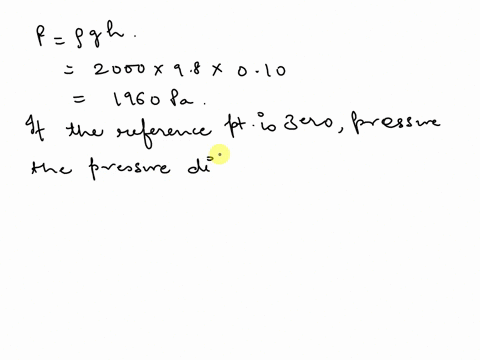 P = ρgh.
= 2000 × 9.8 × 0.10
= 1960 Pa.
If the reference pt. is zero, pressure
the pressure di